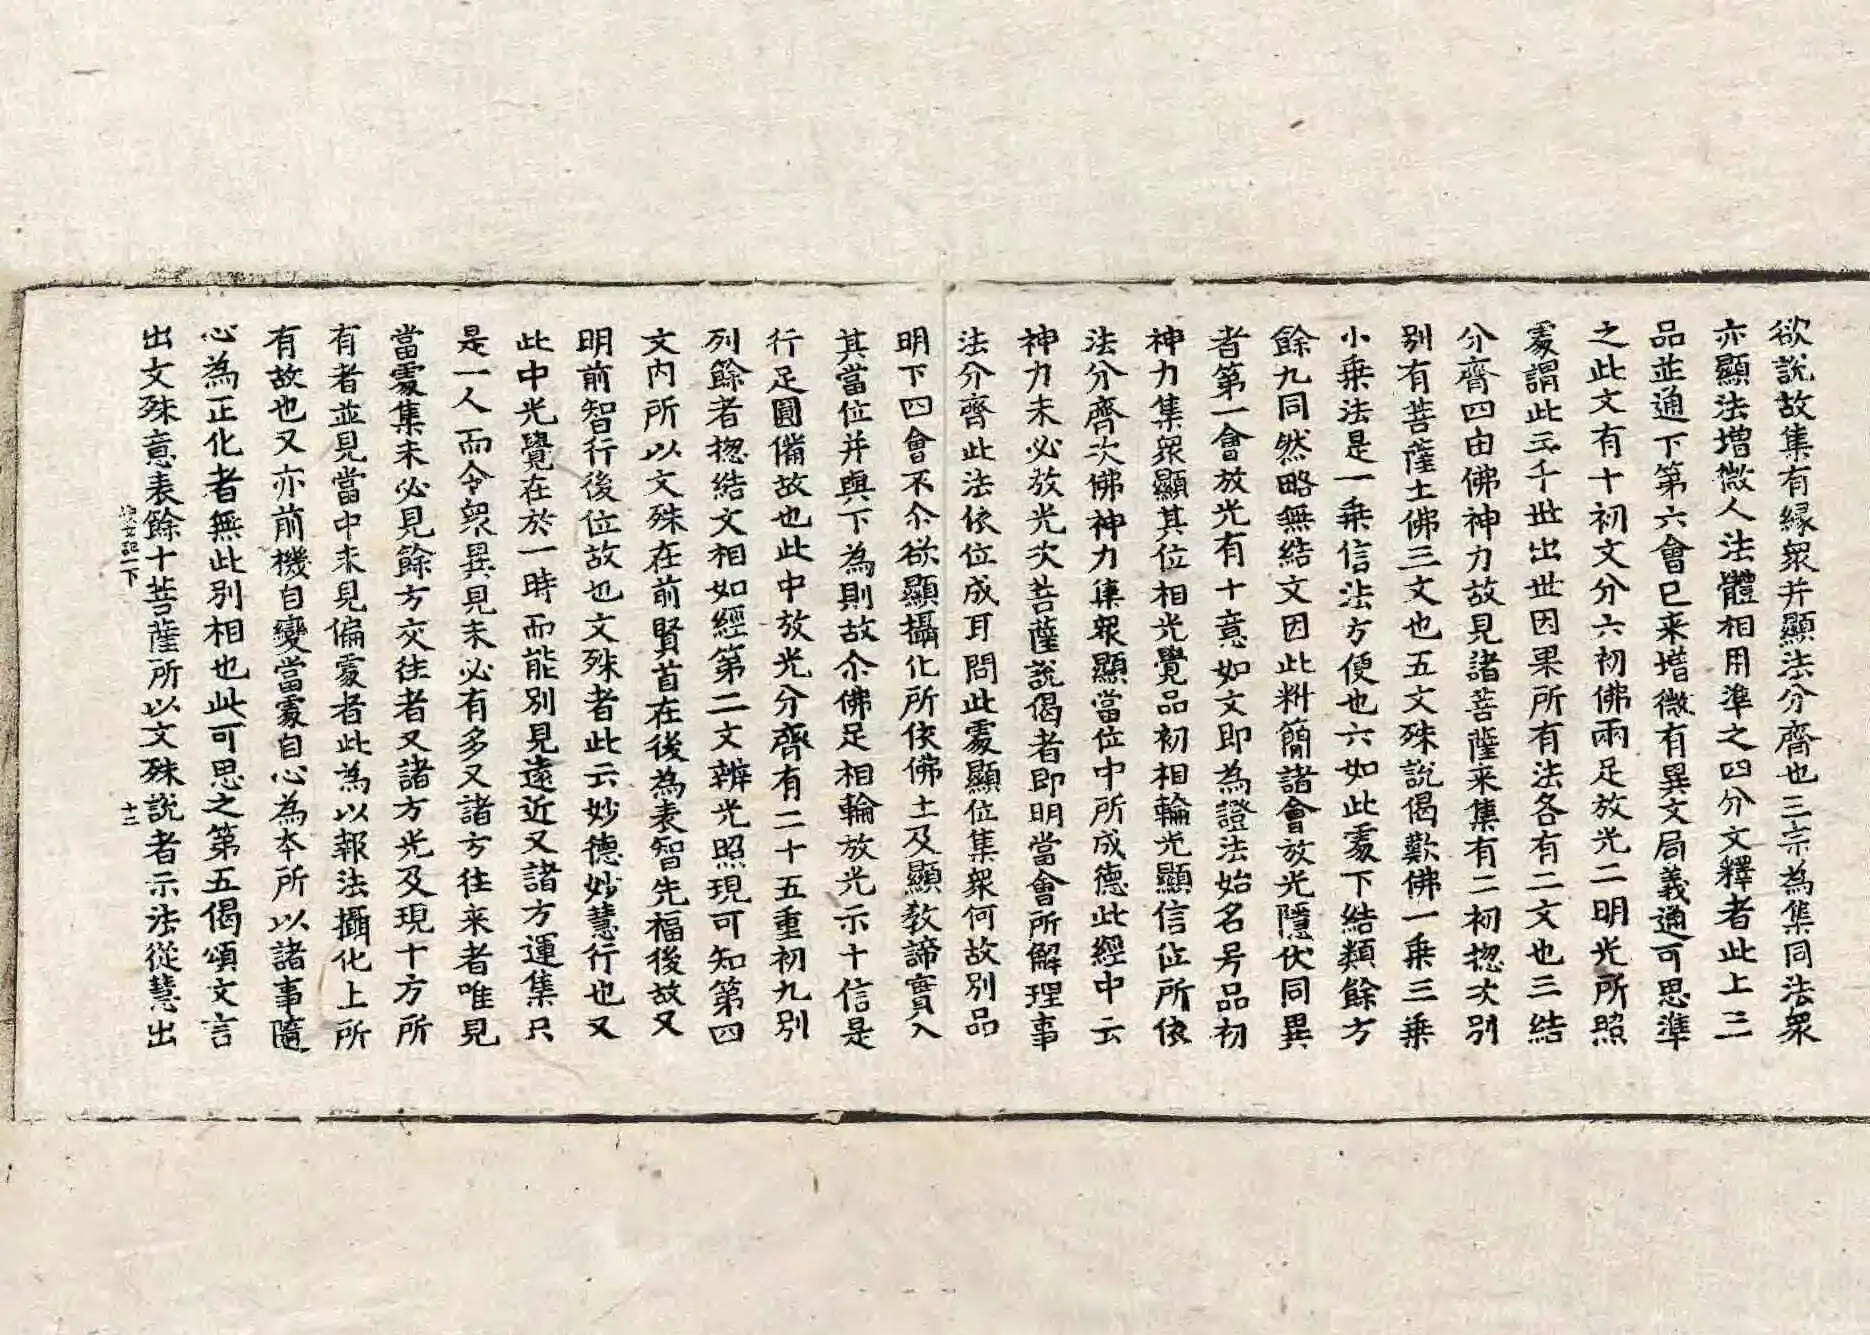 欲說故集有緣衆并顯法分齊也三宗為集同法衆
亦顯法增微人法體相用準之四分文釋者此上三
品並通下第六會已来增微有異文局義通可思準
之此文有十初文分六初佛兩足放光二明光所照
處謂此三千世出世因果所有法各有二文也三結
分齊四由佛神力故見諸菩薩来集有二初揔次別
別有菩薩土佛三文也五文殊說偈歎佛一乗三乗
小乗法是一乗信法方便也六如此處下結類餘方
餘九同然略無結文因此料簡諸會放光隱伏同異
者第一會放光有十意如文即為證法始名号品初
神力集衆顯其位相光覺品初相輪光顯信位所依
法分齊次佛神力集衆顯當位中所成德此經中云
神力未必放光次菩薩說偈者即明當會所解理事
法分齊此法依位成耳問此處顯位集衆何故別品
明下四會不尒欲顯攝化所依佛土及顯教諦實入
其當位并與下為則故尒佛足相輪放光示十信是
行足圓備故也此中放光分齊有二十五重初九別
列餘者揔結文相如經第二文辨光照現可知第四
文内所以文殊在前賢首在後為表智先福後故又
明前智行後位故也文殊者此云妙德妙慧行也又
此中光覺在於一時而能別見遠近又諸方運集只
是一人而令衆異見未必有多又諸方往来者唯見
當處集未必見餘方交往者又諸方光及現十方所
有者並見當中未見偏處者此為以報法攝化上所
有故也又亦前機自變當處自心為本所以諸事隨
心為正化者無此別相也此可思之第五偈頌文言
出文殊意表餘十菩薩所以文殊說者示法從慧出
記一下 十二